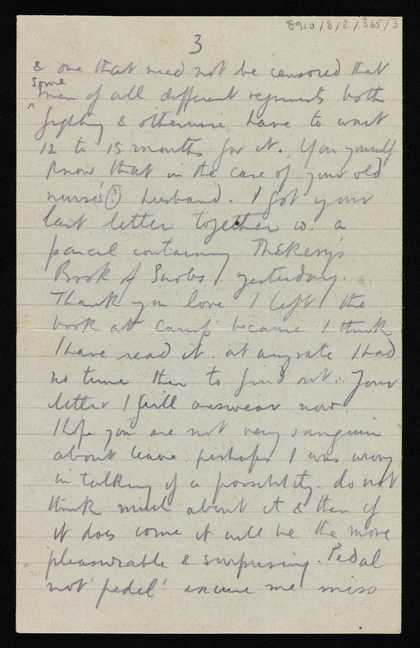 8910/8/2/365/3
3
& one that need not be censored that
some
men of all different regiments both
fighting & otherwise have to wait
12 to 15 months for it. You yourself
know that in the case of your old
nurse's(?) husband. I got your
last letter together w. a
parcel containing Thekery's
Book of Snobs yesterday.
Thank you love I left the
book at camp because I think
I have read it. at any rate I had
no time then to find out. Your
letter I will answear now.
I hope you are not very sanguin
about leave perhaps I was wrong
in talking of a possibility. do not
think much about it & then if
it does come it will be the more
pleasurable & surprising. Pedal
not 'pedel' excuse me miss